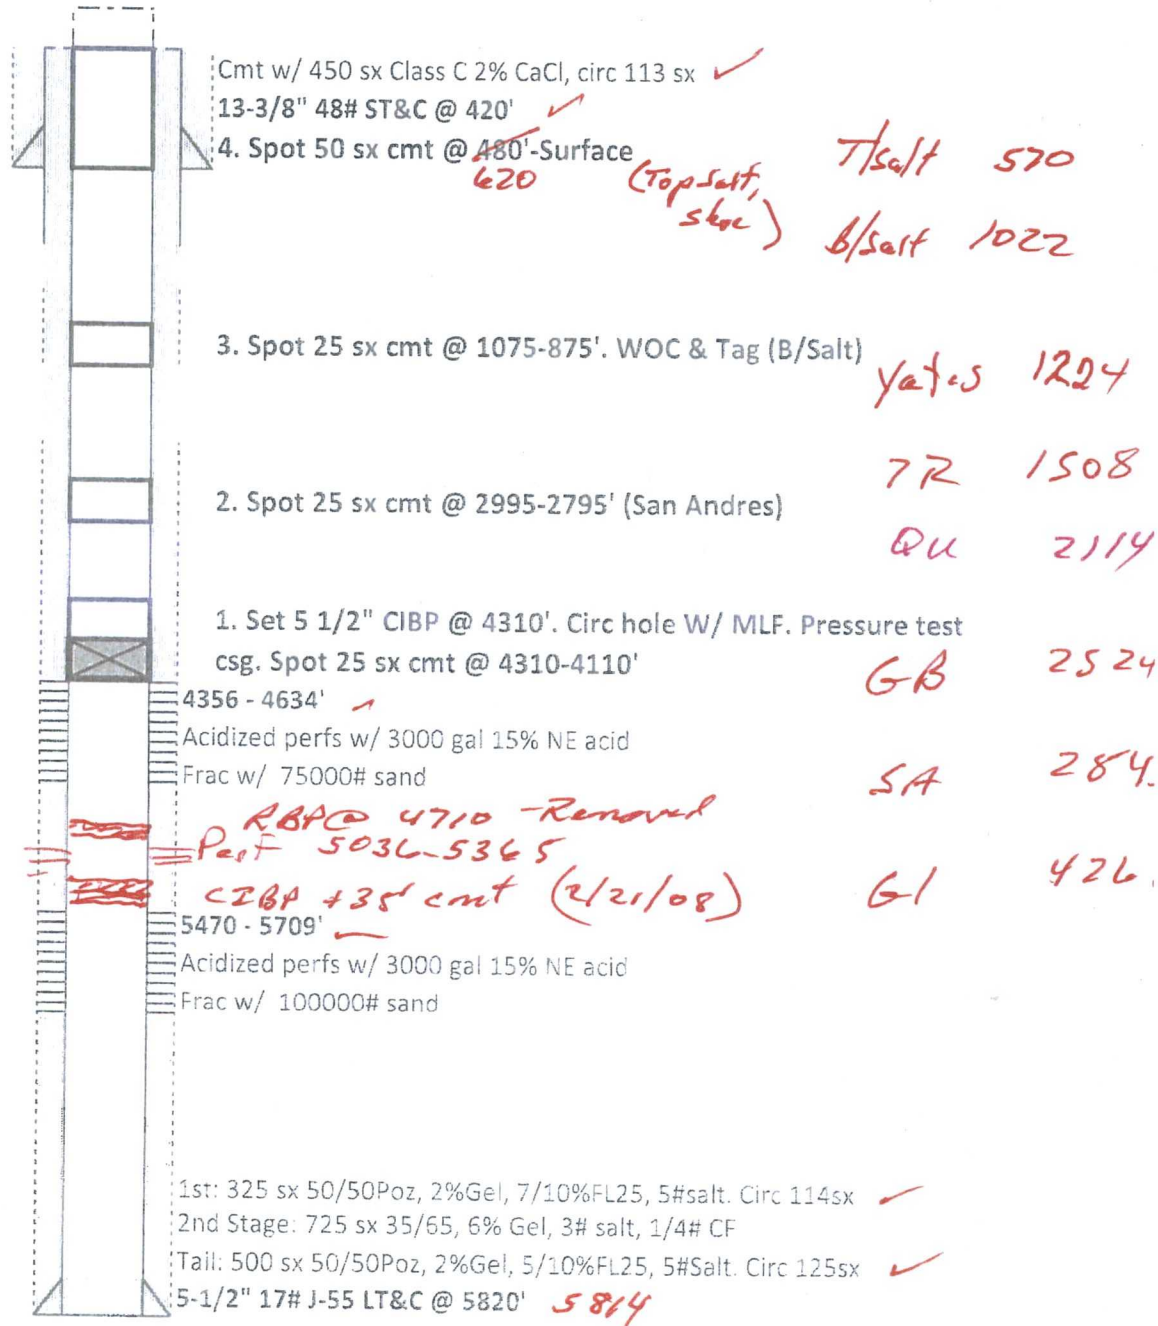 Cmt w/ 450 sx Class C 2% CaCl, circ 113 sx ✓
13-3/8" 48# ST&C @ 420' ✓
4. Spot 50 sx cmt @ 480'-Surface
620 (Top Salt, shoe)
T/Salt 570
B/Salt 1022
3. Spot 25 sx cmt @ 1075-875'. WOC & Tag (B/Salt)
Yates 1224
7R 1508
2. Spot 25 sx cmt @ 2995-2795' (San Andres)
Qu 2114
1. Set 5 1/2" CIBP @ 4310'. Circ hole W/ MLF. Pressure test
csg. Spot 25 sx cmt @ 4310-4110'
GB 2524
4356 - 4634'
Acidized perfs w/ 3000 gal 15% NE acid
Frac w/ 75000# sand
SA 284
RBP@ 4710 - Removed
Perf 5036-5365
CIBP +35' cmt (2/21/08)
Gl 426
5470 - 5709'
Acidized perfs w/ 3000 gal 15% NE acid
Frac w/ 100000# sand
1st: 325 sx 50/50Poz, 2%Gel, 7/10%FL25, 5#salt. Circ 114sx ✓
2nd Stage: 725 sx 35/65, 6% Gel, 3# salt, 1/4# CF
Tail: 500 sx 50/50Poz, 2%Gel, 5/10%FL25, 5#Salt. Circ 125sx ✓
5-1/2" 17# J-55 LT&C @ 5820' 5814